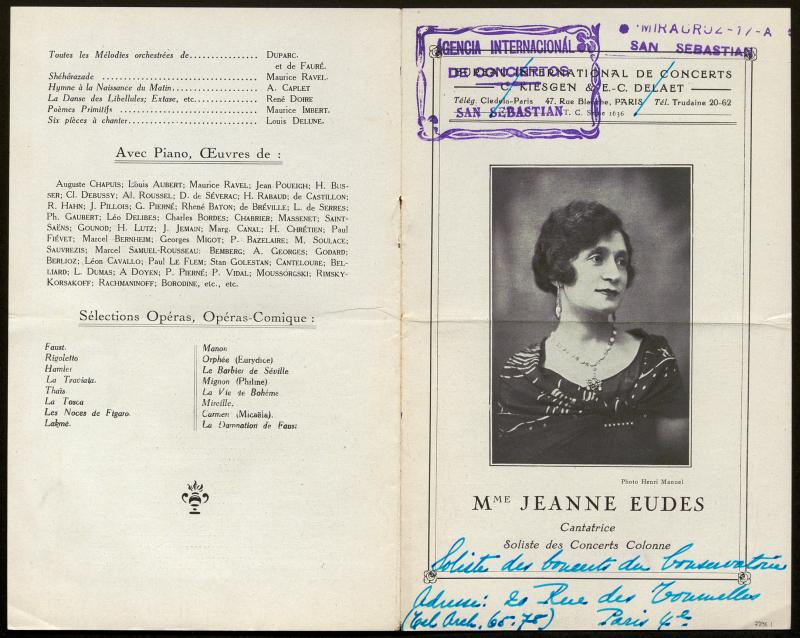 Toutes les Mélodies orchestrées de................. DUPARC.
et de FAURÉ.
Shéhérazade ...................................... Maurice RAVEL.
Hymne à la Naissance du Matin..................... A. CAPLET
La Danse des Libellules; Extase, etc............... RENÉ DOIRE
Poèmes Primitifs ................................. Maurice IMBERT.
Six pièces à chanter............................... LOUIS DELUNE.
Avec Piano, Œuvres de :
Auguste CHAPUIS; Louis AUBERT; Maurice RAVEL; Jean POUEIGH; H. BUS-
SER; Cl. DEBUSSY; Al. ROUSSEL; D. de SÉVERAC; H. RABAUD; de CASTILLON;
R. HAHN; J. PILLOIS; G. PIERNÉ; Rhené BATON; de BRÉVILLE; L. de SERRES;
Ph. GAUBERT; Léo DELIBES; Charles BORDES; CHABRIER; MASSENET; SAINT-
SAËNS; GOUNOD; H. LUTZ, J. JEMAIN; Marg. CANAL; H. CHRÉTIEN; Paul
FIÉVET; Marcel BERNHEIM; Georges MIGOT; P. BAZELAIRE; M. SOULACE;
SAUVREZIS; Marcel SAMUEL-ROUSSEAU; BEMBERG; A. GEORGES; GODARD;
BERLIOZ; Léon CAVALLO; Paul LE FLEM; Stan GOLESTAN; CANTELOUBE; BEL-
LIARD; L. DUMAS; A DOYEN; P. PIERNÉ; P. VIDAL; MOUSSORGSKI; RIMSKY-
KORSAKOFF; RACHMANINOFF; BORODINE, etc., etc.
Sélections Opéras, Opéras-Comique :
Faust.
Rigoletto
Hamlet
La Traviata.
Thaïs
La Tosca
Les Noces de Figaro.
Lakmé.
Manon
Orphée (Eurydice)
Le Barbier de Séville
Mignon (Philine)
La Vie de Bohème
Mireille.
Carmen (Micaëla).
La Damnation de Faust
MIRACRUZ-17-A
SAN SEBASTIAN
AGENCIA INTERNACIONAL
DE CONCIERTOS
SAN SEBASTIAN
BUREAU INTERNATIONAL DE CONCERTS
C. KIESGEN & E.-C. DELAET
Télég. Cledela-Paris 47, Rue Blanche, PARIS Tél. Trudaine 20-62
Photo Henri Manuel
MME JEANNE EUDES
Cantatrice
Soliste des Concerts Colonne
Soliste des Concerts du Conservatoire
Adresse: 20 Rue des Tournelles
(Tel. Arch. 65-75) Paris 4e